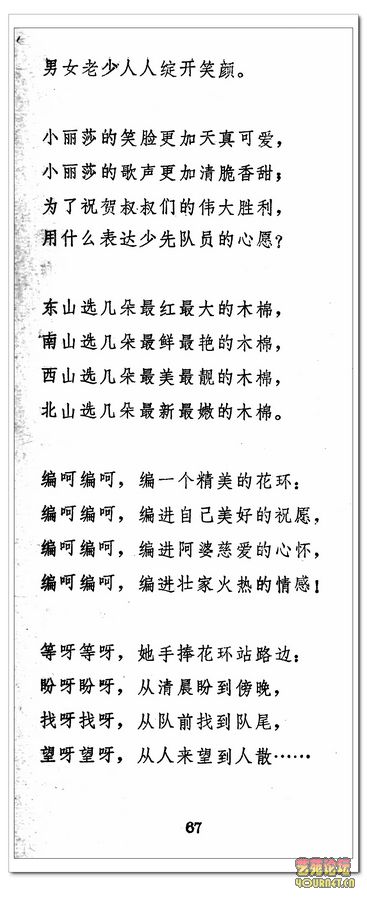 男女老少人人绽开笑颜。
小丽莎的笑脸更加天真可爱，
小丽莎的歌声更加清脆香甜；
为了祝贺叔叔们的伟大胜利，
用什么表达少先队员的心愿？
东山选几朵最红最大的木棉，
南山选几朵最鲜最艳的木棉，
西山选几朵最美最靓的木棉，
北山选几朵最新最嫩的木棉。
编呵编呵，编一个精美的花环：
编呵编呵，编进自己美好的祝愿，
编呵编呵，编进阿婆慈爱的心怀，
编呵编呵，编进壮家火热的情感！
等呀等呀，她手捧花环站路边：
盼呀盼呀，从清晨盼到傍晚，
找呀找呀，从队前找到队尾，
望呀望呀，从人来望到人散……
67
艺苑论坛
4YOURNET.CN